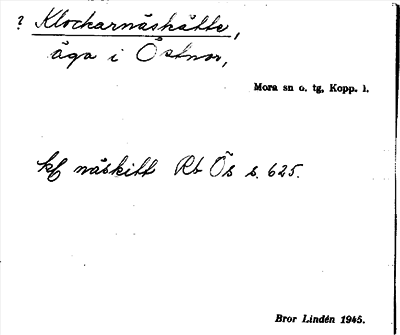 ? Klockarnäskätte,
äga i Östnor,
Mora sn o. tg, Kopp. l.
kf näskitt Rb Ös s. 625.
Bror Lindén 1945.